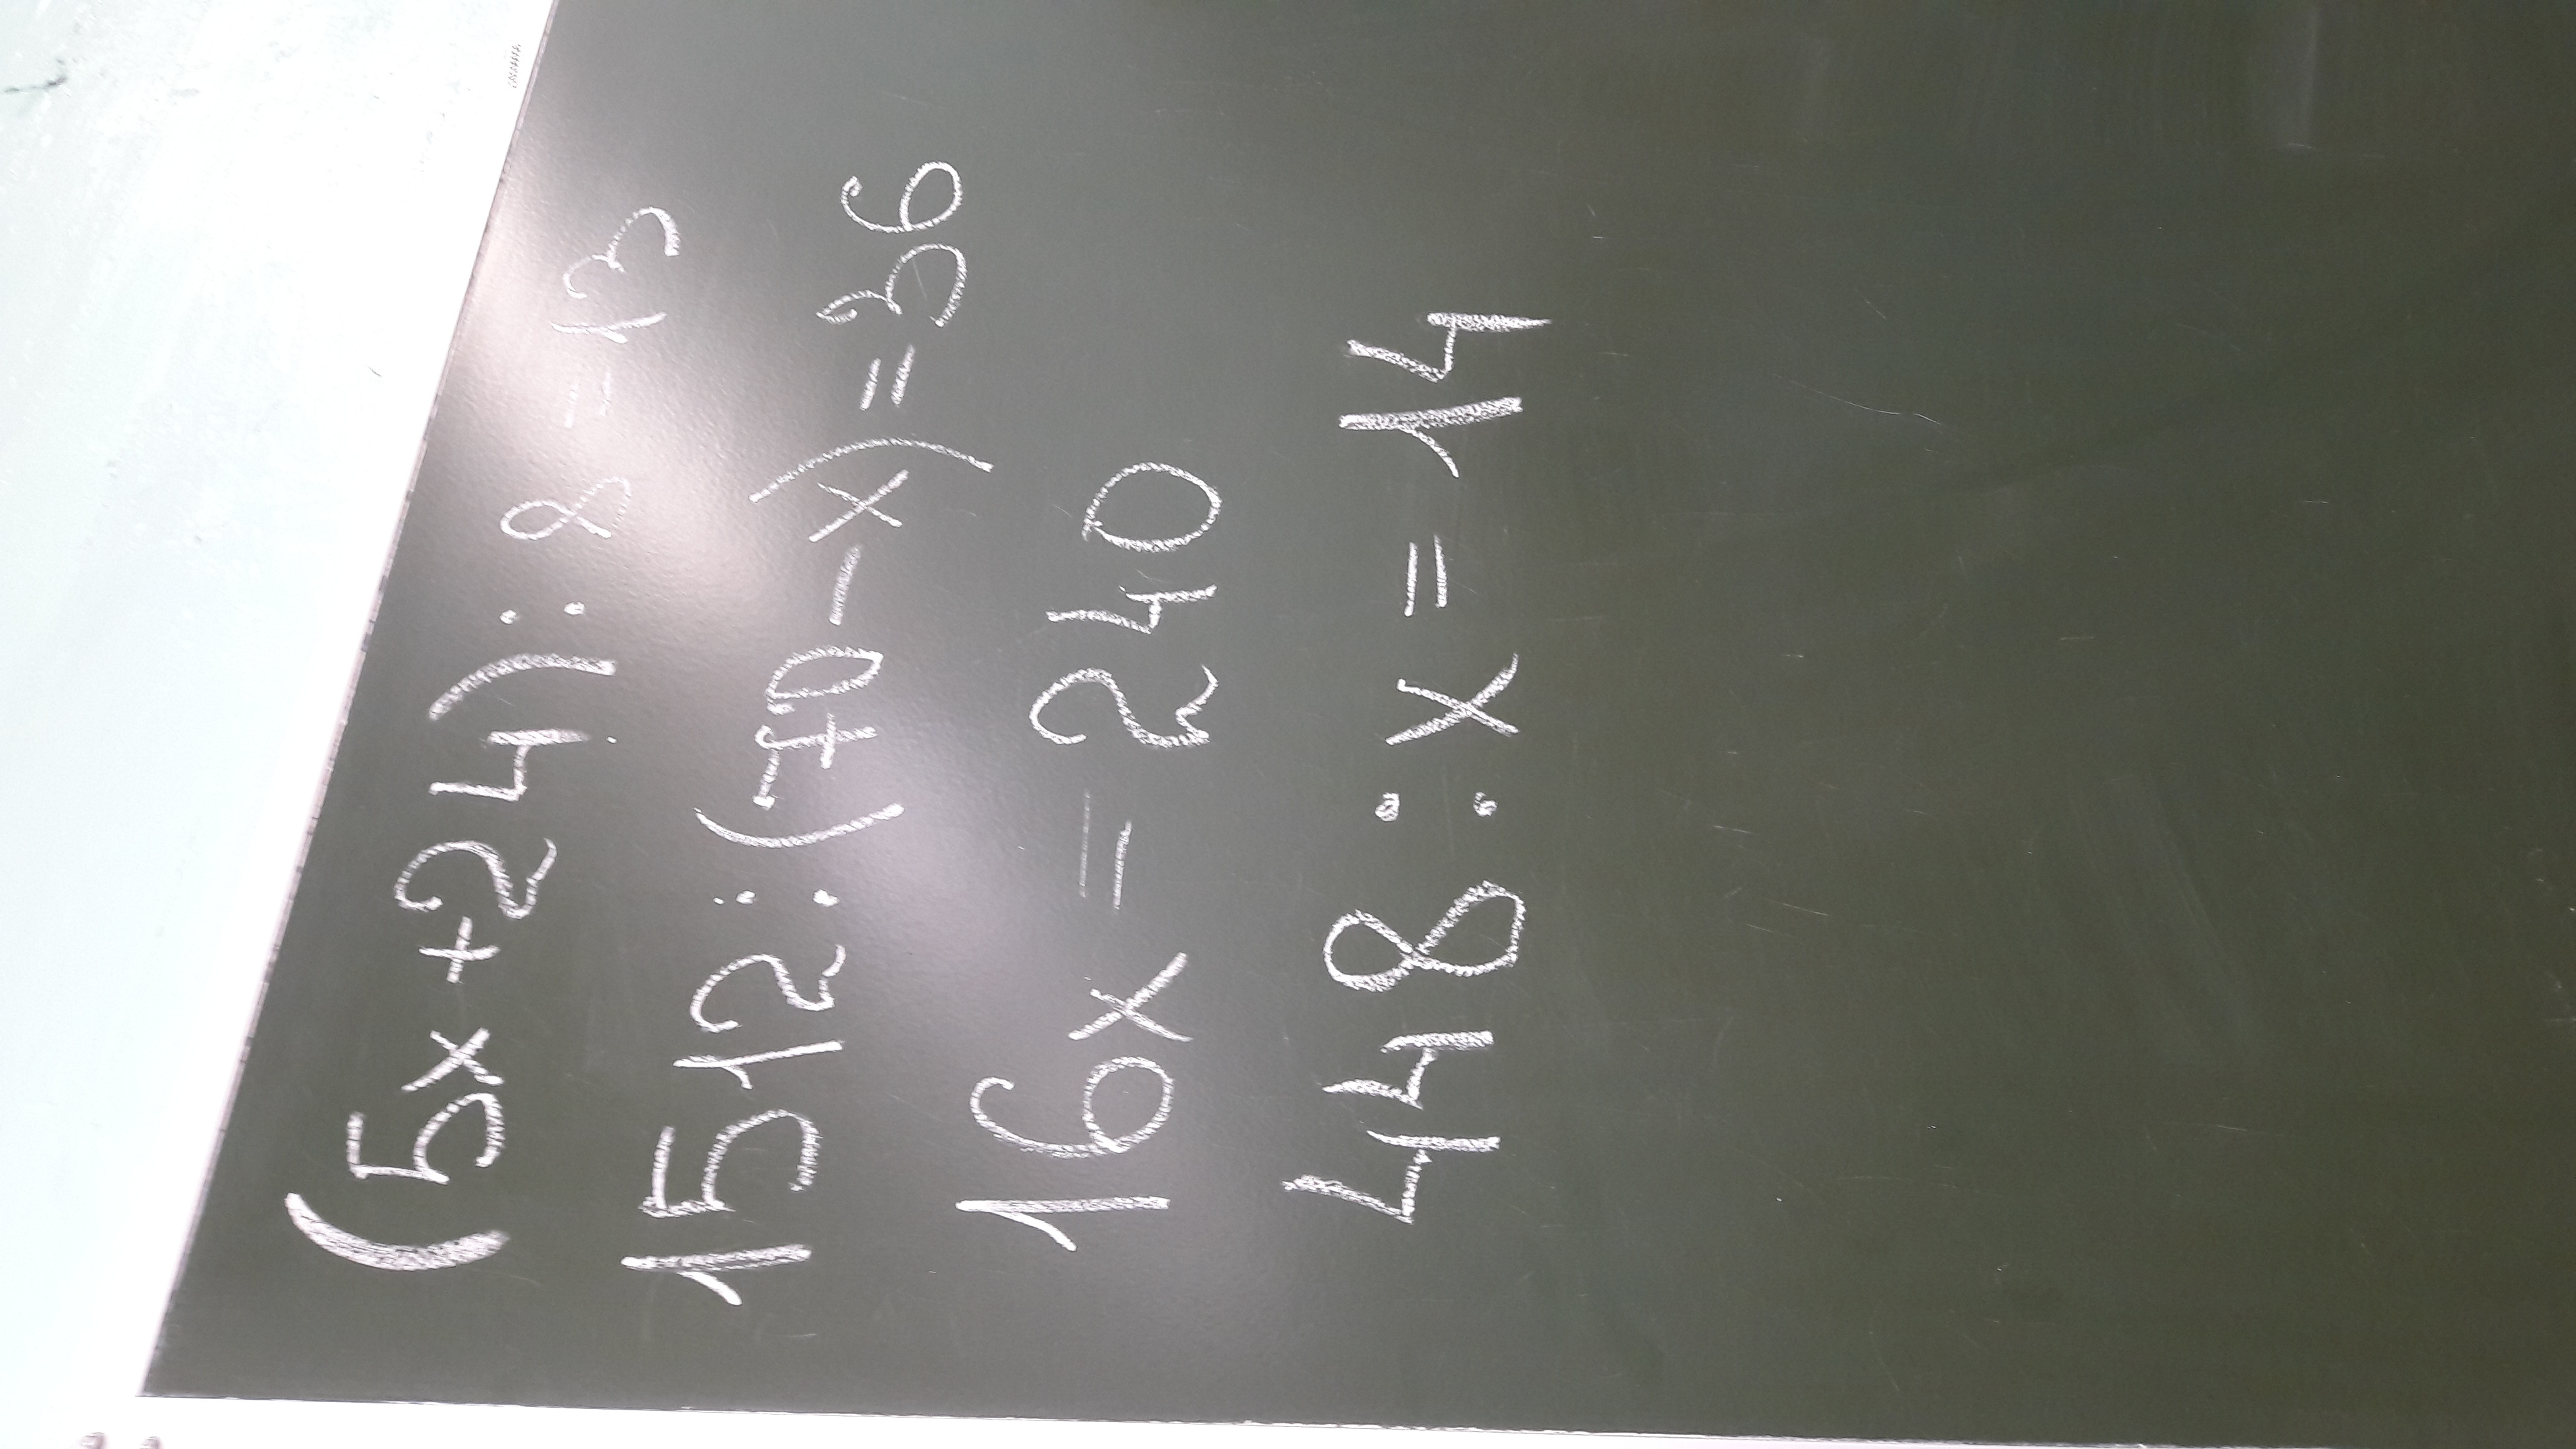 (5x+24):8=13
1512:(70-x)=36
16x=240
448:x=14